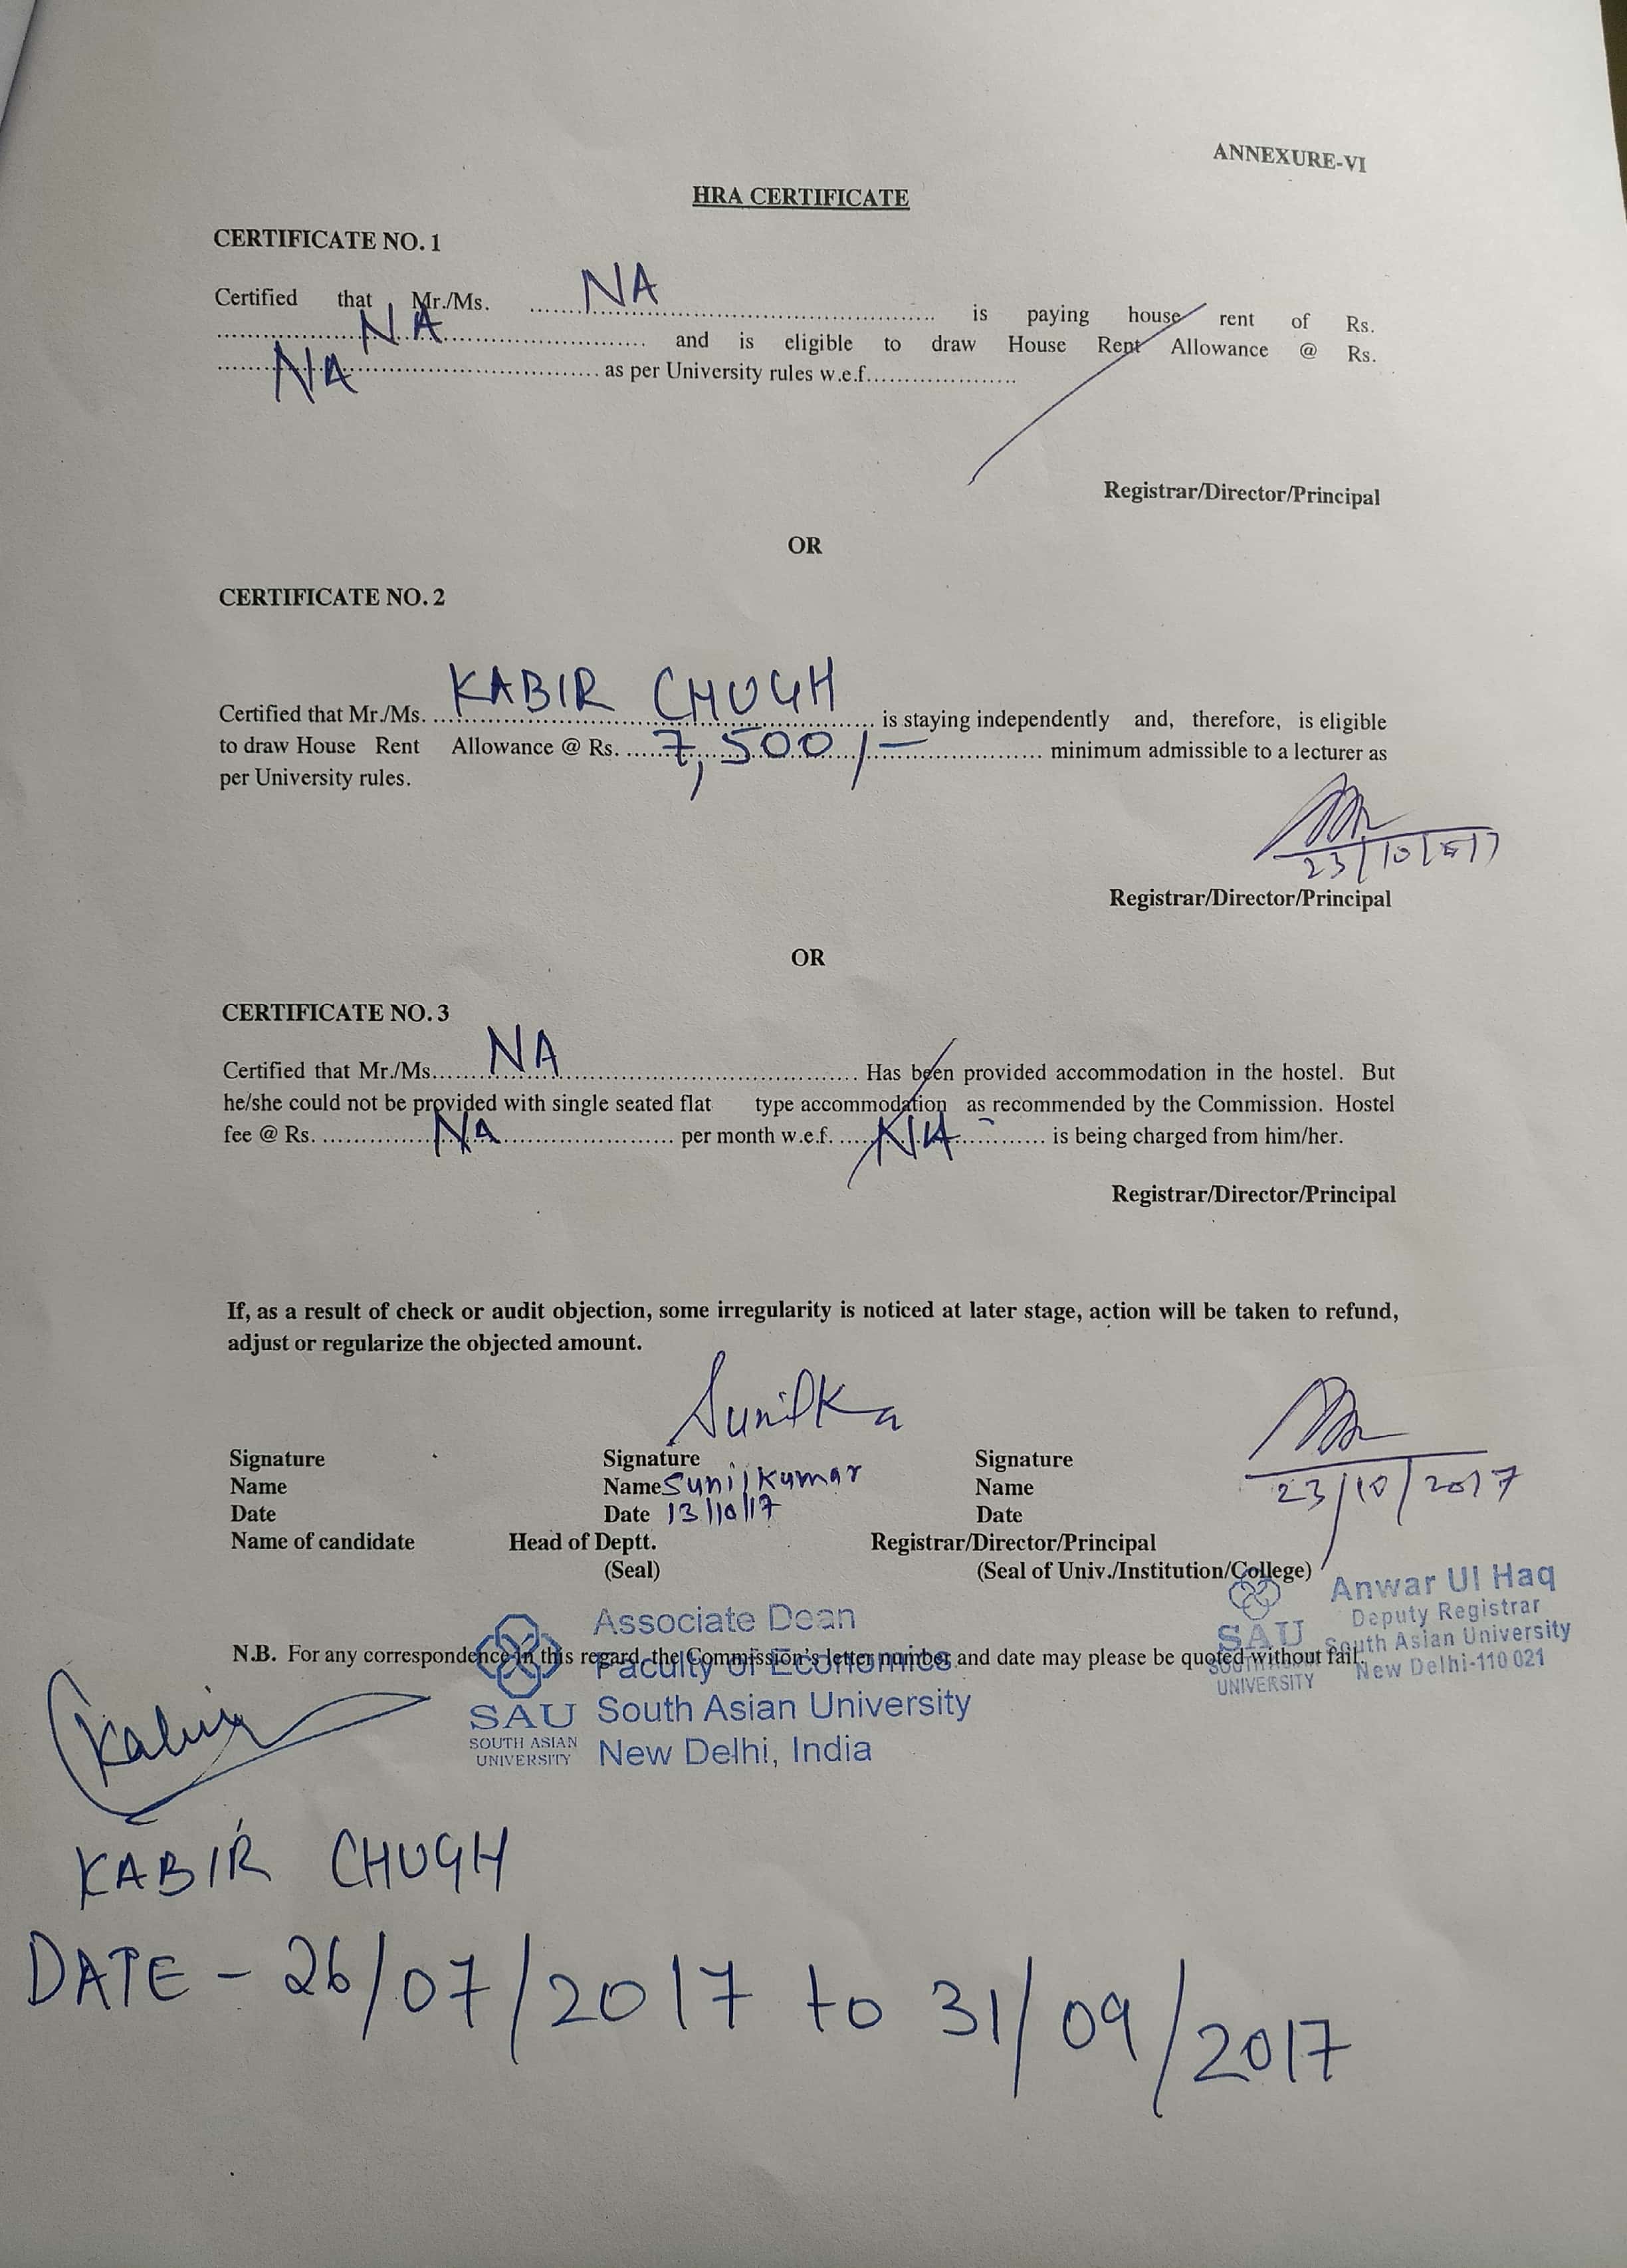 ANNEXURE-VI
HRA CERTIFICATE
CERTIFICATE NO. 1
Certified that Mr./Ms. .....NA..... is paying house rent of Rs.
.....NA..... and is eligible to draw House Rent Allowance @ Rs.
.....NA..... as per University rules w.e.f.....................
Registrar/Director/Principal
OR
CERTIFICATE NO. 2
Certified that Mr./Ms. KABIR CHUGH is staying independently and, therefore, is eligible
to draw House Rent Allowance @ Rs. 7,500/- minimum admissible to a lecturer as
per University rules.
23/10/2017
Registrar/Director/Principal
OR
CERTIFICATE NO. 3
Certified that Mr./Ms.....NA..... Has been provided accommodation in the hostel. But
he/she could not be provided with single seated flat type accommodation as recommended by the Commission. Hostel
fee @ Rs. .....NA..... per month w.e.f. .....NA..... is being charged from him/her.
Registrar/Director/Principal
If, as a result of check or audit objection, some irregularity is noticed at later stage, action will be taken to refund,
adjust or regularize the objected amount.
SunilKa
Signature Signature Signature
Name Name Sunil Kumar Name
Date Date 13/10/17 Date 23/10/2017
Name of candidate Head of Deptt. Registrar/Director/Principal
(Seal) (Seal of Univ./Institution/College)
Anwar Ul Haq
Deputy Registrar
South Asian University
New Delhi-110 021
SAU
SOUTH ASIAN
UNIVERSITY
Associate Dean
N.B. For any correspondence in this regard, the Commission's letter number and date may please be quoted without fail.
Faculty of Economics
South Asian University
New Delhi, India
SAU
SOUTH ASIAN
UNIVERSITY
Kabir
KABIR CHUGH
DATE - 26/07/2017 to 31/09/2017